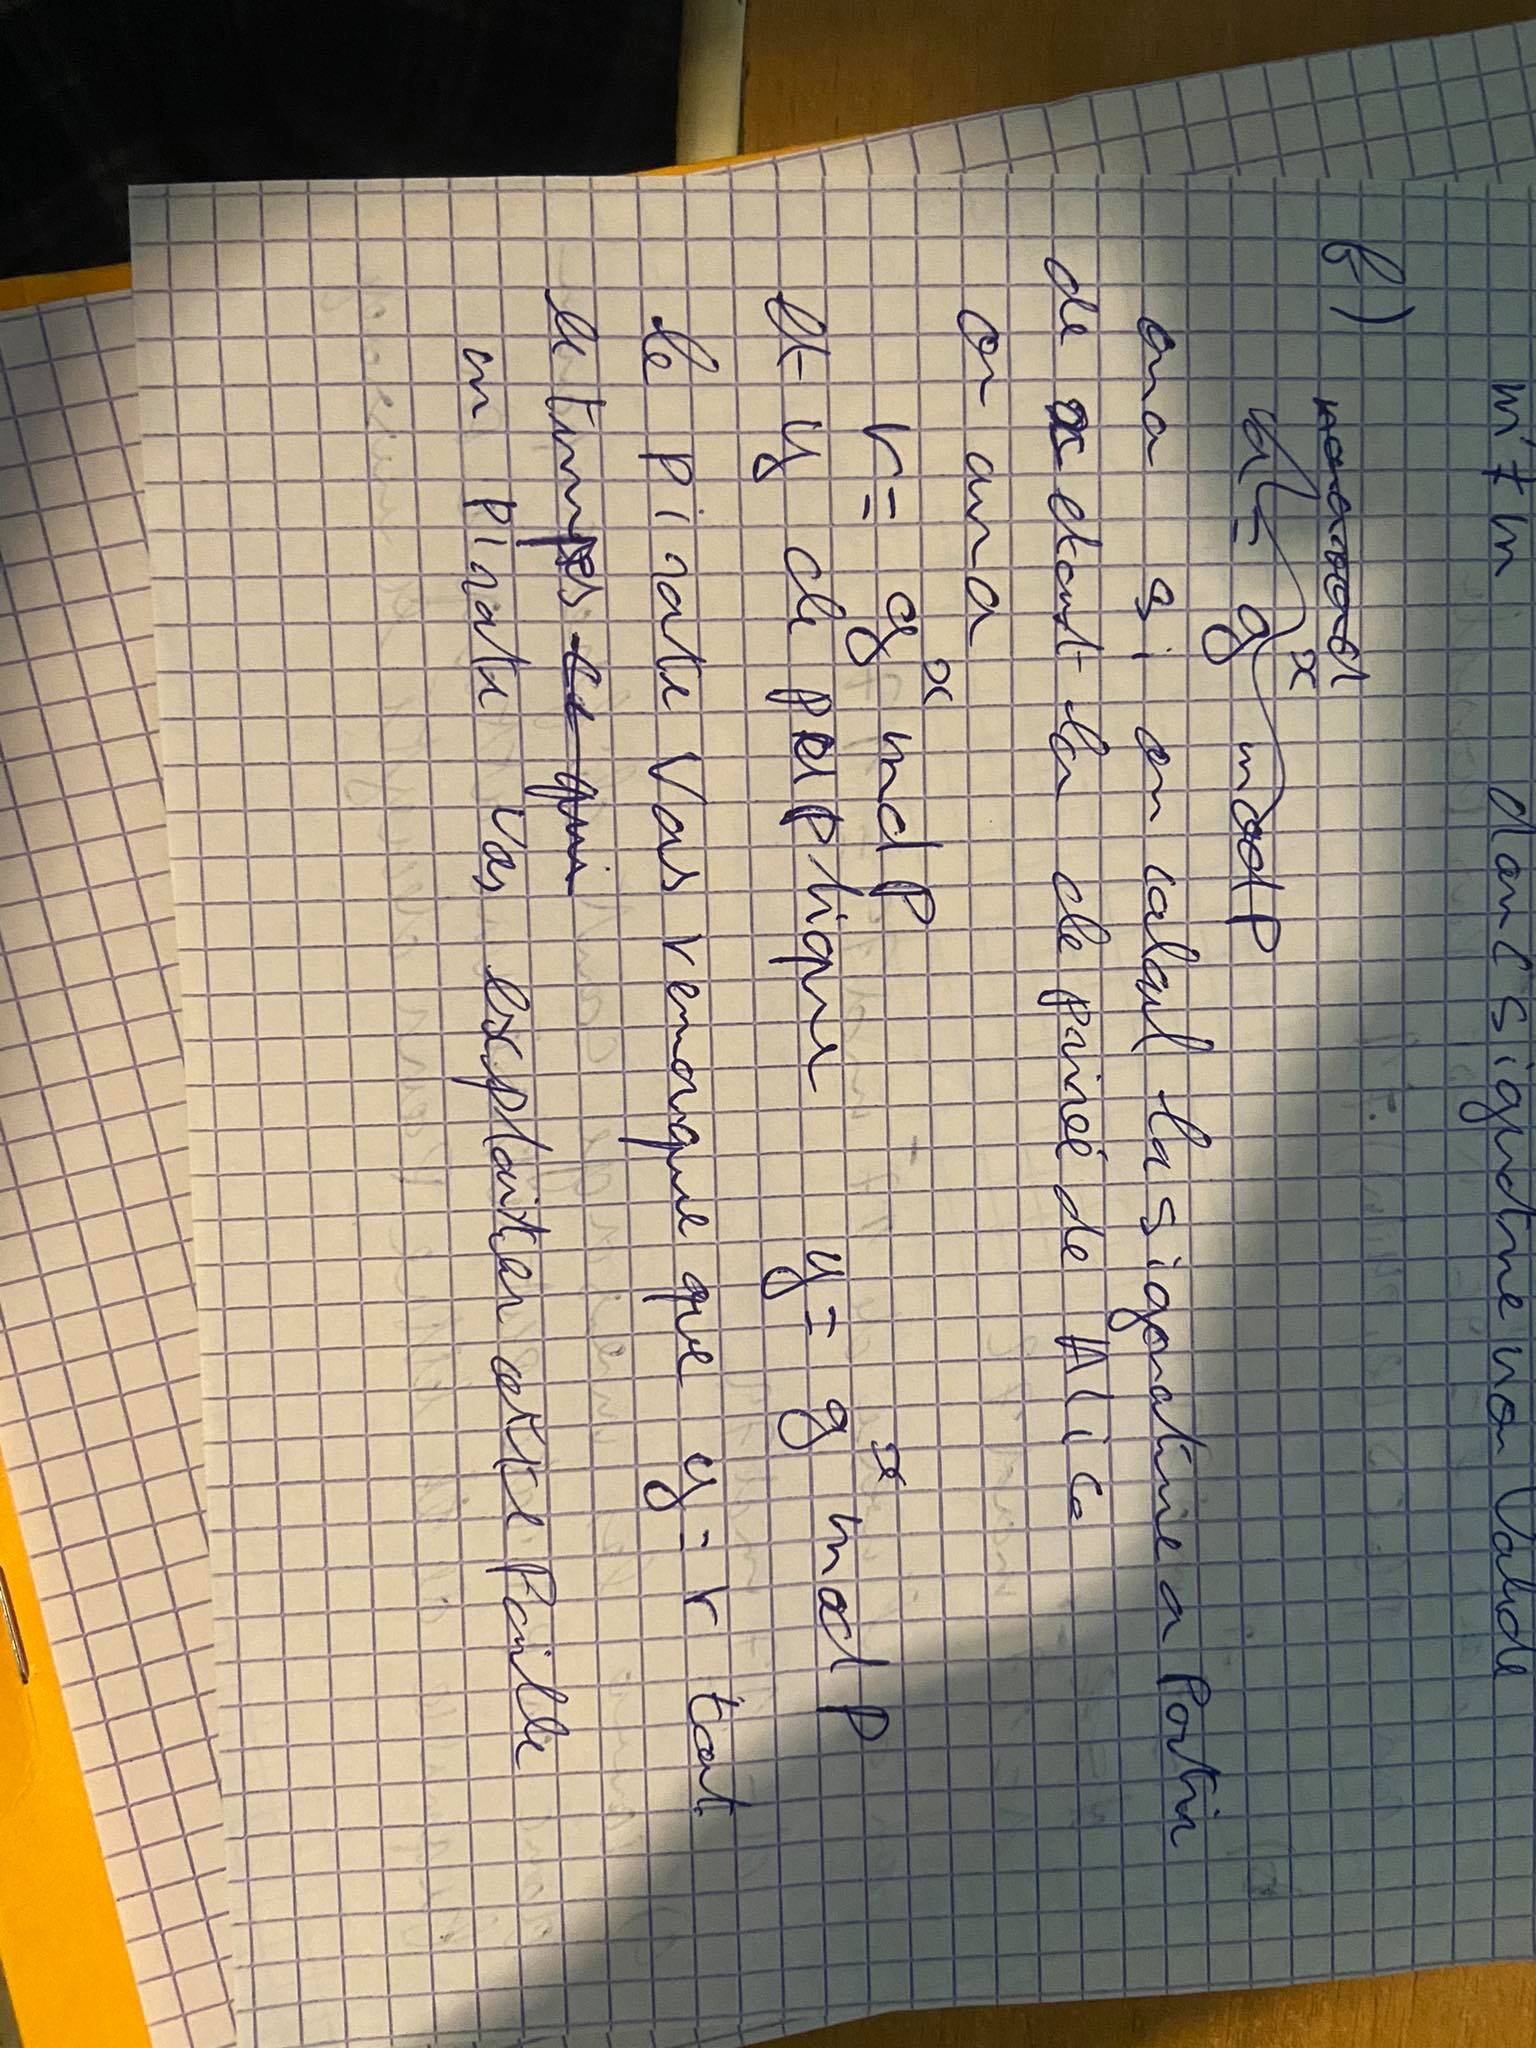 m' ≠ m donc signature non valide
b)
a = g^x mod P
on a si on calcul la signature a Partir
de x etant la cle privée de Alice
on aura
r = g^x md P
et y cle puplique y = g^x mod P
le pirate vas remarque que y = r tout
le temps ce qui
un pirate vas exploiter cette Faille